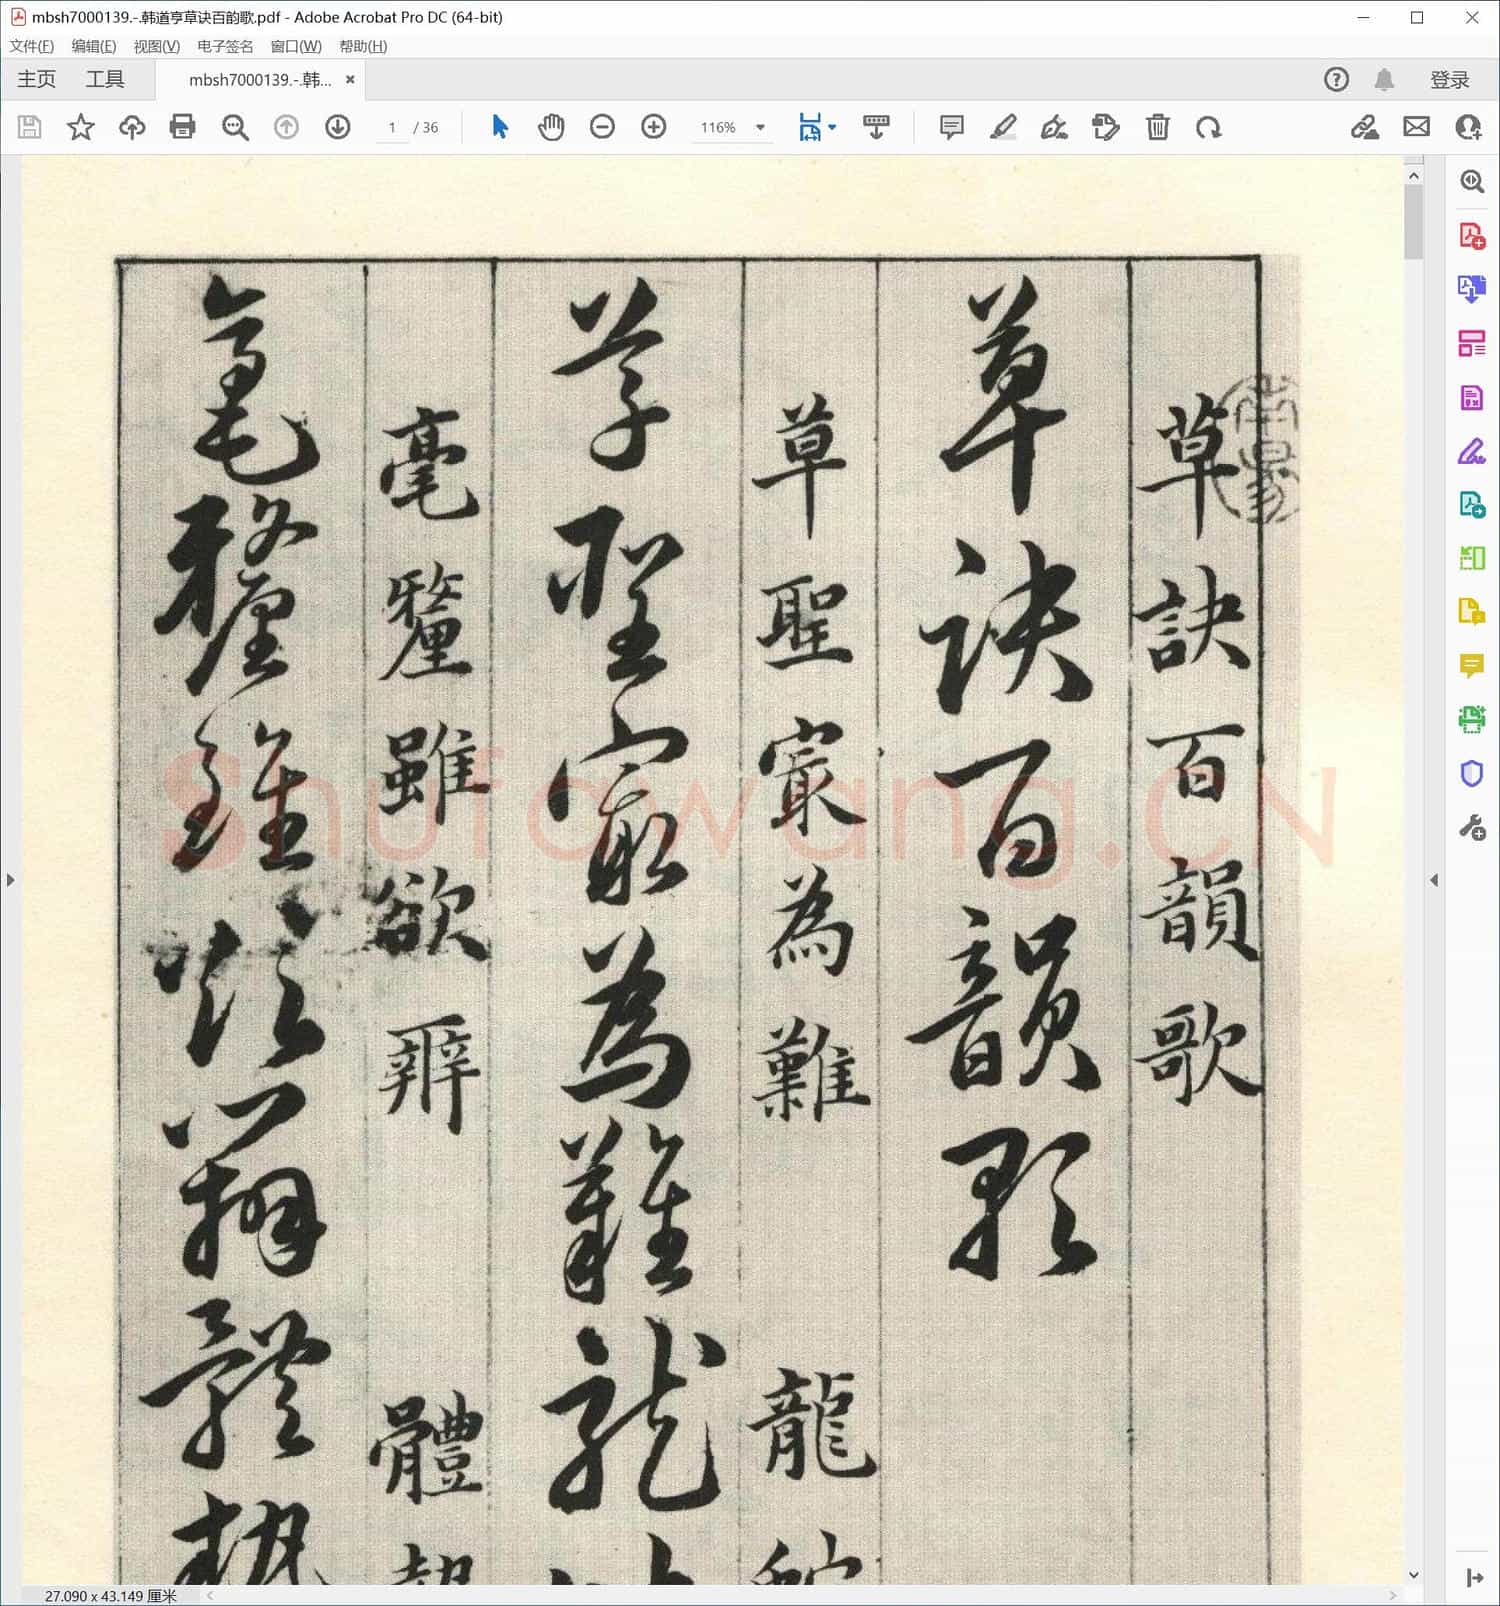 mbsh7000139.-.韩道亨草诀百韵歌.pdf - Adobe Acrobat Pro DC (64-bit)
文件(F) 编辑(E) 视图(V) 电子签名 窗口(W) 帮助(H)
主页 工具 mbsh7000139.-.韩... 登录
1 / 36 116%
草訣百韻歌
草訣百韻歌
草聖最為難 龍
草聖最為難龍
毫釐雖欲辨 體勢
毫釐雖欲辨體勢
Shufawang.CN
27.090 x 43.149 厘米